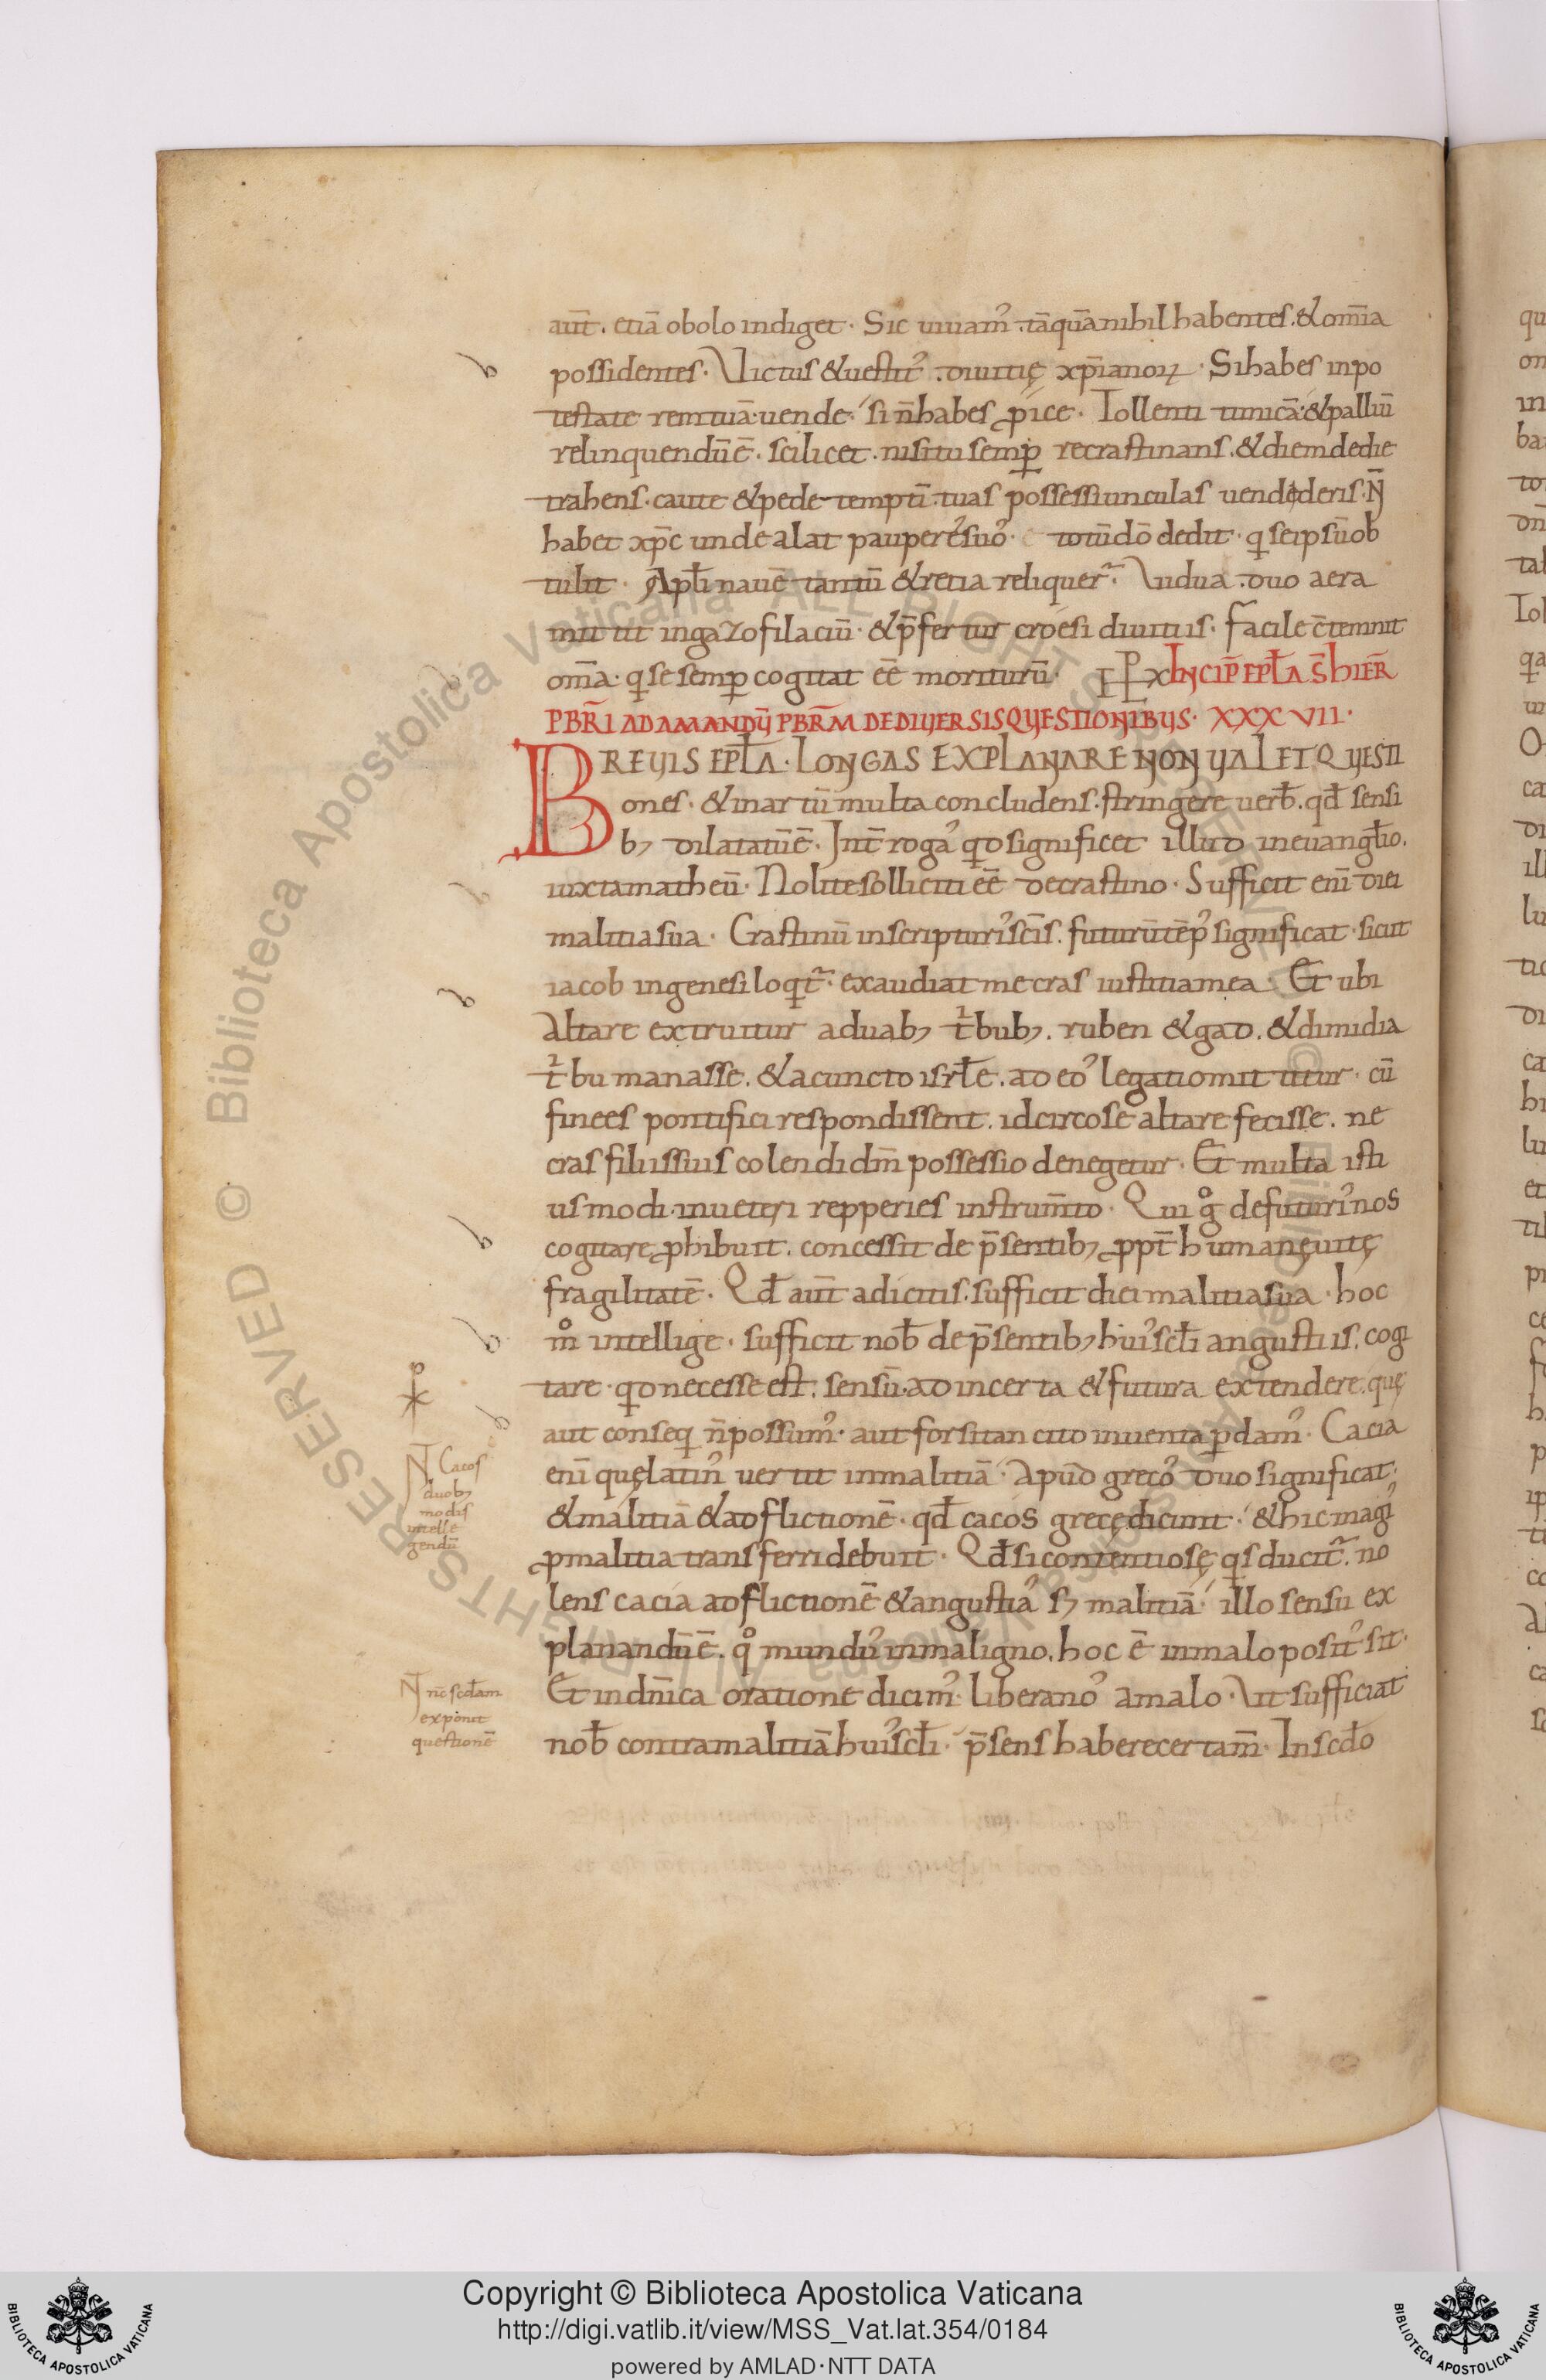 aut̄. etiā obolo indiget. Sic uiuam᾽. tāquā nihil habentes. & om̄ia
possidentes. Victus & uestit᾽. diuitię xp̄ianoꝝ. Si habes in po
testate rem tuā. uende. si n̄ habes ꝓice. Tollenti tunicā. & palliū
relinquendū ē. scilicet. nisi tu semꝑ recrastinans. & diem de die
trahens. caute & pedetemptī. tuas possessiunculas uendederis. N̄
habet xp̄c unde alat pauperes suo᾽. totū dō dedit. qͥ seipsū ob
tulit. Apłi nauē tantū & retia reliquer᷑. Vidua duo aera
mittit in gazofilaciū. & p̄fertur croesi diuitiis. Facile c̄temnit
om̄a. qͥ se semꝑ cogitat eē moriturū. INCIP̄ EPŁA S̄ HIER̄
PBR̄I AD AMANDŪ PBR̄M DE DIUERSIS QUESTIONIBUS. XXXVII.
BREUIS EPŁA. LONGAS EXPLANARE NON UALET QUESTI
ones. & in artū multa concludens. stringere uerƀ. qđ sensi
bꝫ dilatatū ē. Int̄roga᾽ qͥd significet illud in euangłio.
iuxta matheū. Nolite solliciti eē de crastino. Sufficit eni᷑ diei
malitia sua. Crastinū in scripturi᾽ scīs. futurū tēp᾽ significat. sicut
iacob in genesi loqͥt᷑. exaudiat me cras iustitia mea. Et ubi
altare extruitur a duabꝫ tͥbubꝫ. ruben & gad. & dimidia
tͥbu manasse. & a cuncto isrłe. ad eo᾽ legatio mittitur. cū
finees pontifici respondissent. idcirco se altare fecisse. ne
cras filiis suis colendi dm̄ possessio denegetur. Et multa isti
usmodi. in ueteri repperies instrum̄to. Qui gͦ de futuri᾽ nos
cogitare ꝓhibuit. concessit de p̄sentibꝫ ꝓpt̄ humanę uitę
fragilitatē. Qđ aut̄ adicitis. sufficit diei malitia sua. hoc
mͦ intellige. sufficit noƀ de p̄sentibꝫ hui᾽ scłi angustiis. cogi
tare. qͥd necesse est. sensū. ad incerta & futura extendere. quę
aut conseqͥ n̄ possum᾽. aut forsitan cito inuenta ꝑdam᾽. Cacia
eni᷑ quę latin᾽ uertit in malitiā. Apud greco᾽ duo significat.
& malitiā & adflictionē. qđ cacos grece dicunt. & hic magi᾽
ꝓ malitia transferri debuit. Qđ si contentiosę qͥs ducit᷑. no
lens cacia adflictionē & angustia᾽ sꝫ malitiā. illo sensu ex
planandū ē. qͦ mundu᾽ in maligno. hoc ē in malo posit᾽ sit.
Et in dn̄ica oratione dicim᾽. libera no᾽ a malo. Ut sufficiat
noƀ contra malitiā hui᾽ scłi. p̄sens habere certam̄. In scđo
N̄ Cacos
duobꝫ
modis
intelle
gendū
N̄ nc̄ scđam
exponit
questionē
Copyright © Biblioteca Apostolica Vaticana
http://digi.vatlib.it/view/MSS_Vat.lat.354/0184
powered by AMLAD·NTT DATA
BIBLIOTECA APOSTOLICA VATICANA
BIBLIOTECA APOSTOLICA VATICANA